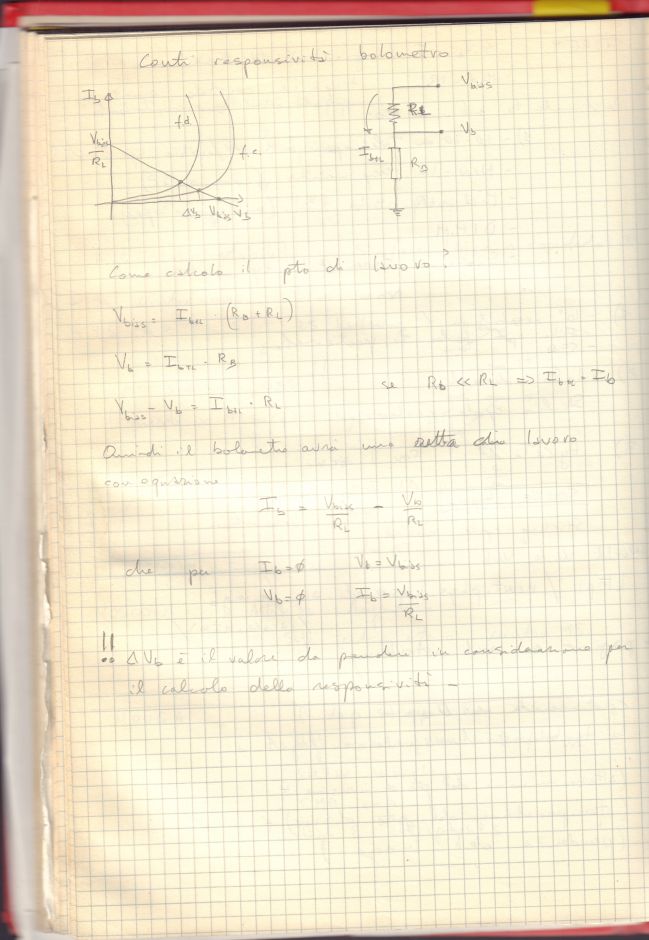 Conti responsività bolometro
I_b
V_bias/R_L
f.d.
f.c.
ΔV_b V_bias V_B
V_bias
R_L
V_b
I_b+L
R_B
Come calcolo il pto di lavoro?
V_bias = I_b+L · (R_B + R_L)
V_b = I_b+L · R_B
V_bias - V_b = I_b+L · R_L
se R_b << R_L => I_b+L = I_b
Quindi il bolometro avrà una retta di lavoro
con equazione
I_b = V_bias/R_L - V_b/R_L
che per I_b = ø V_b = V_bias
V_b = ø I_b = V_bias/R_L
!! ΔV_b è il valore da prendere in considerazione per
il calcolo della responsività -